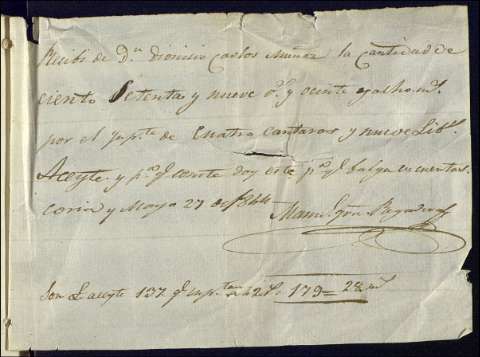 Recibi de Dn. Dionisio Carlos Muñoz la Cantidad de
ciento Setenta y nueve rs. y veinte y ocho ms.
por el Imp.te de Cuatro Cantaros y nueve Lib.s
Aceyte. y pa. q. conste doy este pa. q. balga en cuentas.
Coria y Mayo 27 de 1844
Manl.
Son L aceyte 137 q. imp.tan a 42 179 = 28 ms.